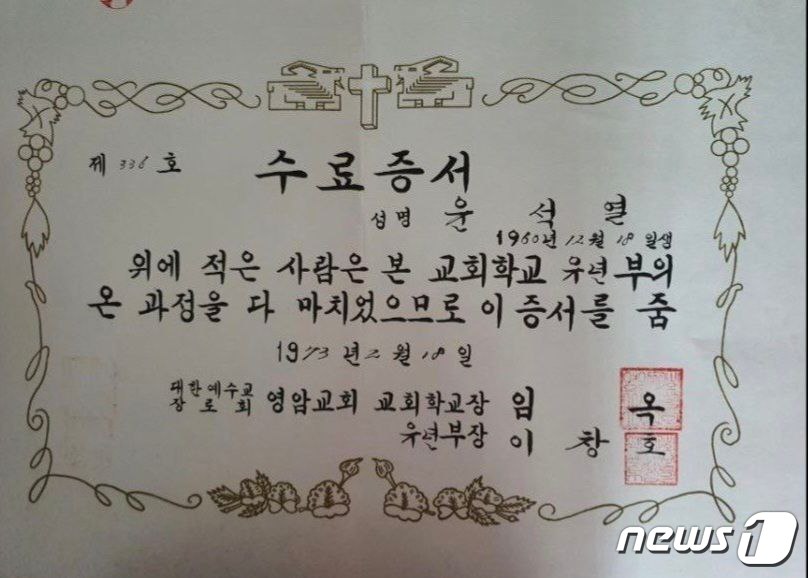 제 336 호
수료증서
성명 윤 석 열
1960년 12월 18일생
위에 적은 사람은 본 교회학교 유년부의
온 과정을 다 마치었으므로 이 증서를 줌
1973년 2월 18일
대한예수교
장로회 영암교회 교회학교장 임 옥
유년부장 이 창 호
news1